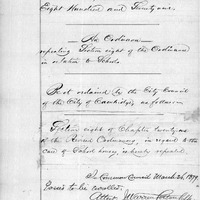 Eight Hundred and Ninety-one.
An Ordinance
repealing Section eight of the Ordinance
in relation to Schools.
Be it ordained by the City Council
of the City of Cambridge, as follows:
Section eight of Chapter Twenty-
of the Revised Ordinances, in regard to the
care of School houses, is hereby repealed.
In Common Council March 26, 1891.
Passed to be enrolled.
Attest